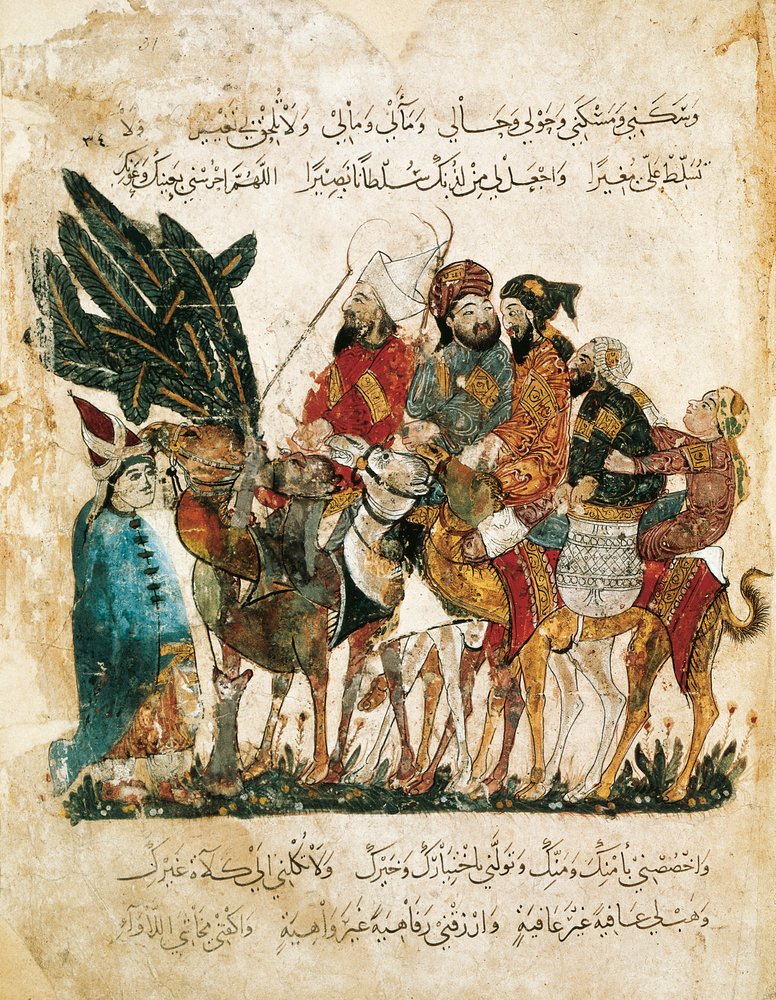 31
وَسَكَنِي وَمَسْكَنِي وَحَوْلِي وَحَالِي وَمَآلِي وَمَالِي وَلَا تُلْحِقْ بِي وَلَا
٣٤
تُسَلِّطْ عَلَيَّ مُغِيرًا وَاجْعَلْ لِي مِنْ لَدُنْكَ سُلْطَانًا نَصِيرًا اللَّهُمَّ احْرُسْنِي بِعَيْنِكَ وَعَوْنِكَ
وَاخْصُصْنِي بِأَمْنِكَ وَمَنِّكَ وَتَوَلَّنِي بِاخْتِيَارِكَ وَخَيْرِكَ وَلَا تَكِلْنِي إِلَى كَلَاءَةِ غَيْرِكَ
وَهَبْ لِي عَافِيَةً غَيْرَ عَافِيَةٍ وَارْزُقْنِي رَفَاهِيَةً غَيْرَ وَاهِيَةٍ وَاكْفِنِي مَخَاشِيَ اللَّأْوَاءِ